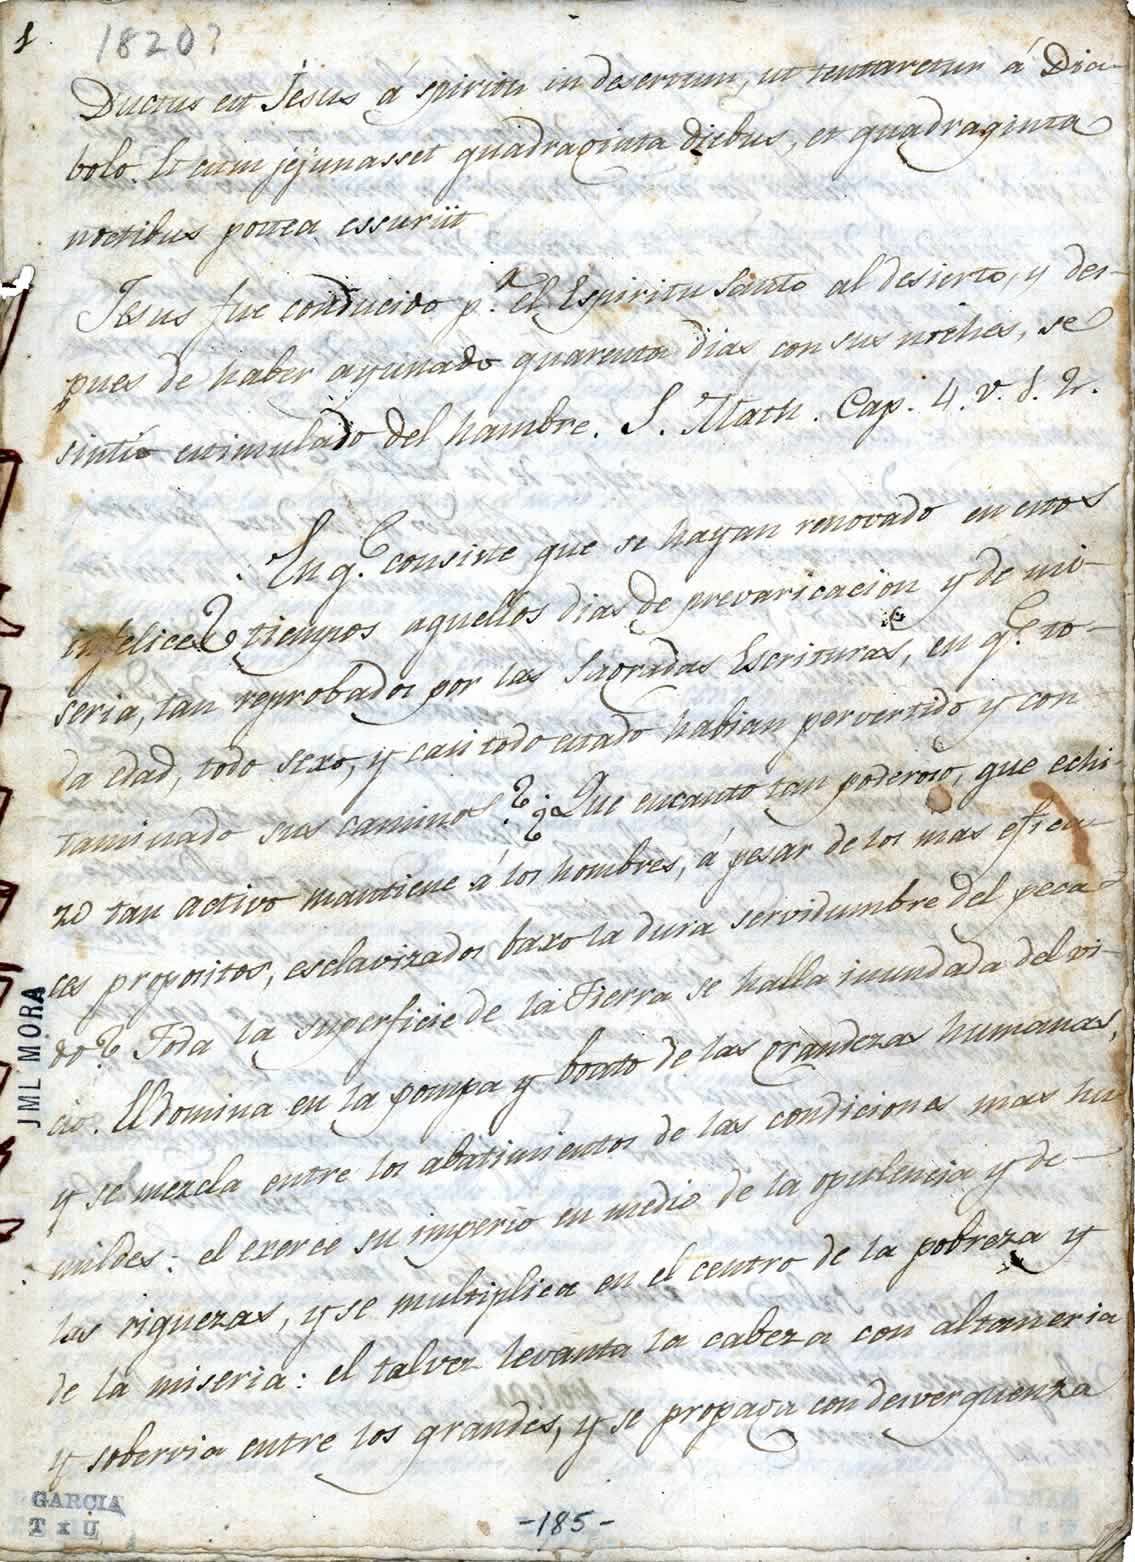 1
1820?
Ductus est Jesus á spiritu in desertum, ut tentaretur á Dia-
bolo. Et cum jejunasset quadraginta diebus, et quadraginta
noctibus postea essuriit
Jesus fue conducido p.r el Espiritu Santo al desierto, y des-
pues de haber ayunado quarenta dias con sus noches, se
sintió estimulado del hambre. S. Math. Cap. 4. v. 1. 2.
En q.e consiste que se hayan renovado en estos
infelices tiempos aquellos dias de prevaricacion y de mi-
seria, tan reprobados por las Sagradas Escrituras, en q.e to-
da edad, todo sexo, y casi todo estado habian pervertido y con
taminado sus caminos? ¿Que encanto tan poderoso, que echi-
zo tan activo mantiene á los hombres, á pesar de los mas efica-
ces propositos, esclavizados baxo la dura servidumbre del peca
do? Toda la superficie de la Tierra se halla inundada del vi-
cio. El domina en la pompa y boato de las grandezas humanas,
y se mezcla entre los abatimientos de las condiciones mas hu
mildes: el exerce su imperio en medio de la opulencia y de-
las riquezas, y se multiplica en el centro de la pobreza y
de la miseria: el talvez levanta la cabeza con altaneria
y sobervia entre los grandes, y se propaga con desverguenza
JML MORA
GARCIA
T x U
-185-